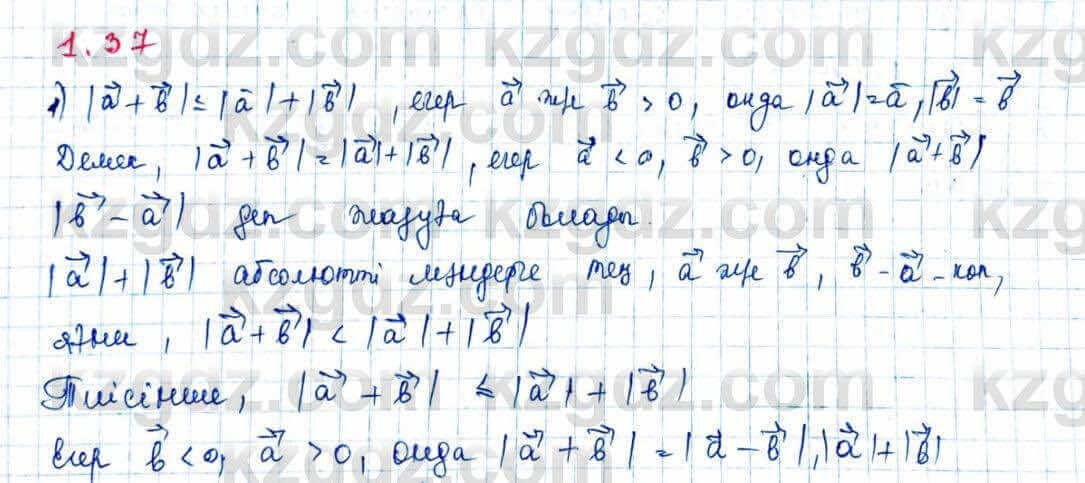 1.37
1) |a⃗ + b⃗| ≤ |a⃗| + |b⃗|, егер a⃗ же b⃗ > 0, онда |a⃗| = a⃗, |b⃗| = b⃗
Демек, |a⃗ + b⃗| = |a⃗| + |b⃗|, егер a⃗ < 0, b⃗ > 0, онда |a⃗ + b⃗|
|b⃗ - a⃗| деп жазуға болады.
|a⃗| + |b⃗| абсолютті мәндерге тең, a⃗ же b⃗, b⃗ - a⃗ - көп,
яғни, |a⃗ + b⃗| < |a⃗| + |b⃗|
Тиісінше, |a⃗ + b⃗| ≤ |a⃗| + |b⃗|
Егер b⃗ < 0, a⃗ > 0, онда |a⃗ + b⃗| = |a⃗ - b⃗|, |a⃗| + |b⃗|
kzgdz.com